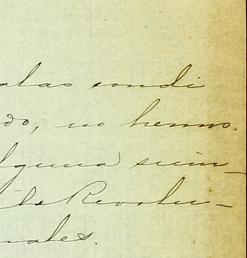 alas condi
do, no hemos
lguna sim-
la Revolu-
nales.